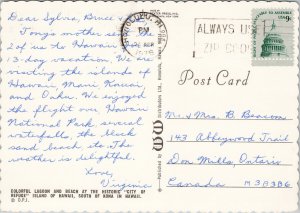 Dear Sylvia, Bruce
Tony's mother sent
2 of us to Hawaii
13-day vacation. We are
visiting the islands of
Hawaii, Maui, Kauai
and Oahu. We enjoyed
the flight over Hawaii
National Park, several
waterfalls, the black
sand beach etc. The
weather is delightful.
Love,
Virginia
COLORFUL LAGOON AND BEACH AT THE HISTORIC "CITY OF
REFUGE" ISLAND OF HAWAII, SOUTH OF KONA IN HAWAII.
HONOLULU, HI
PM
1976
ALWAYS USE
ZIP CODE
Post Card
Mr. & Mrs. B. Bearcom
143 Abbeywood Trail
Don Mills, Ontario
Canada M3B3B6